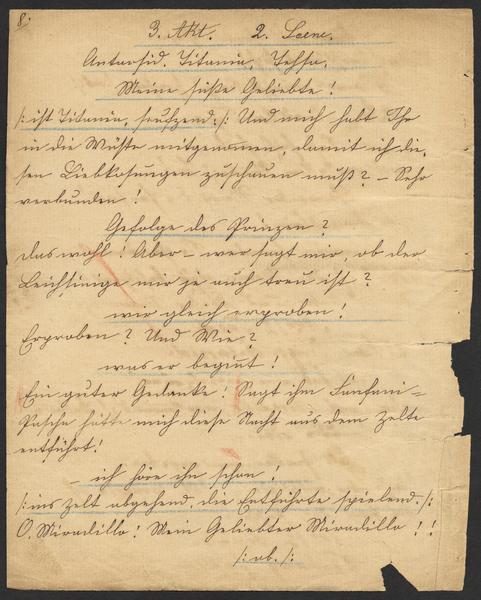 8.
3. Akt. 2. Scene.
Antarsid. Titania, Tessa.
Meine süße Geliebte!
/: ist Titania, seufzend :/ Und mich habt Ihr
in die Wüste mitgenommen, damit ich die,
sen Liebkosungen zuschauen muß? – Sehr
verbunden!
Gefolge des Prinzen?
Das wohl! Aber – wer sagt mir, ob der
Leichsinige mir je auch treu ist?
wir gleich erproben!
Erproben? Und Wie?
was er beginnt!
Ein guter Gedanke! Sagt ihm Fanfani-
Pascha hätte mich diese Nacht aus dem Zelte
entführt!
– ich höre ihn schon!
/: ins Zelt abgehend, die Entführte spielend. :/
O, Miradillo! Mein Geliebter Miradillo!!
/: ab. :/